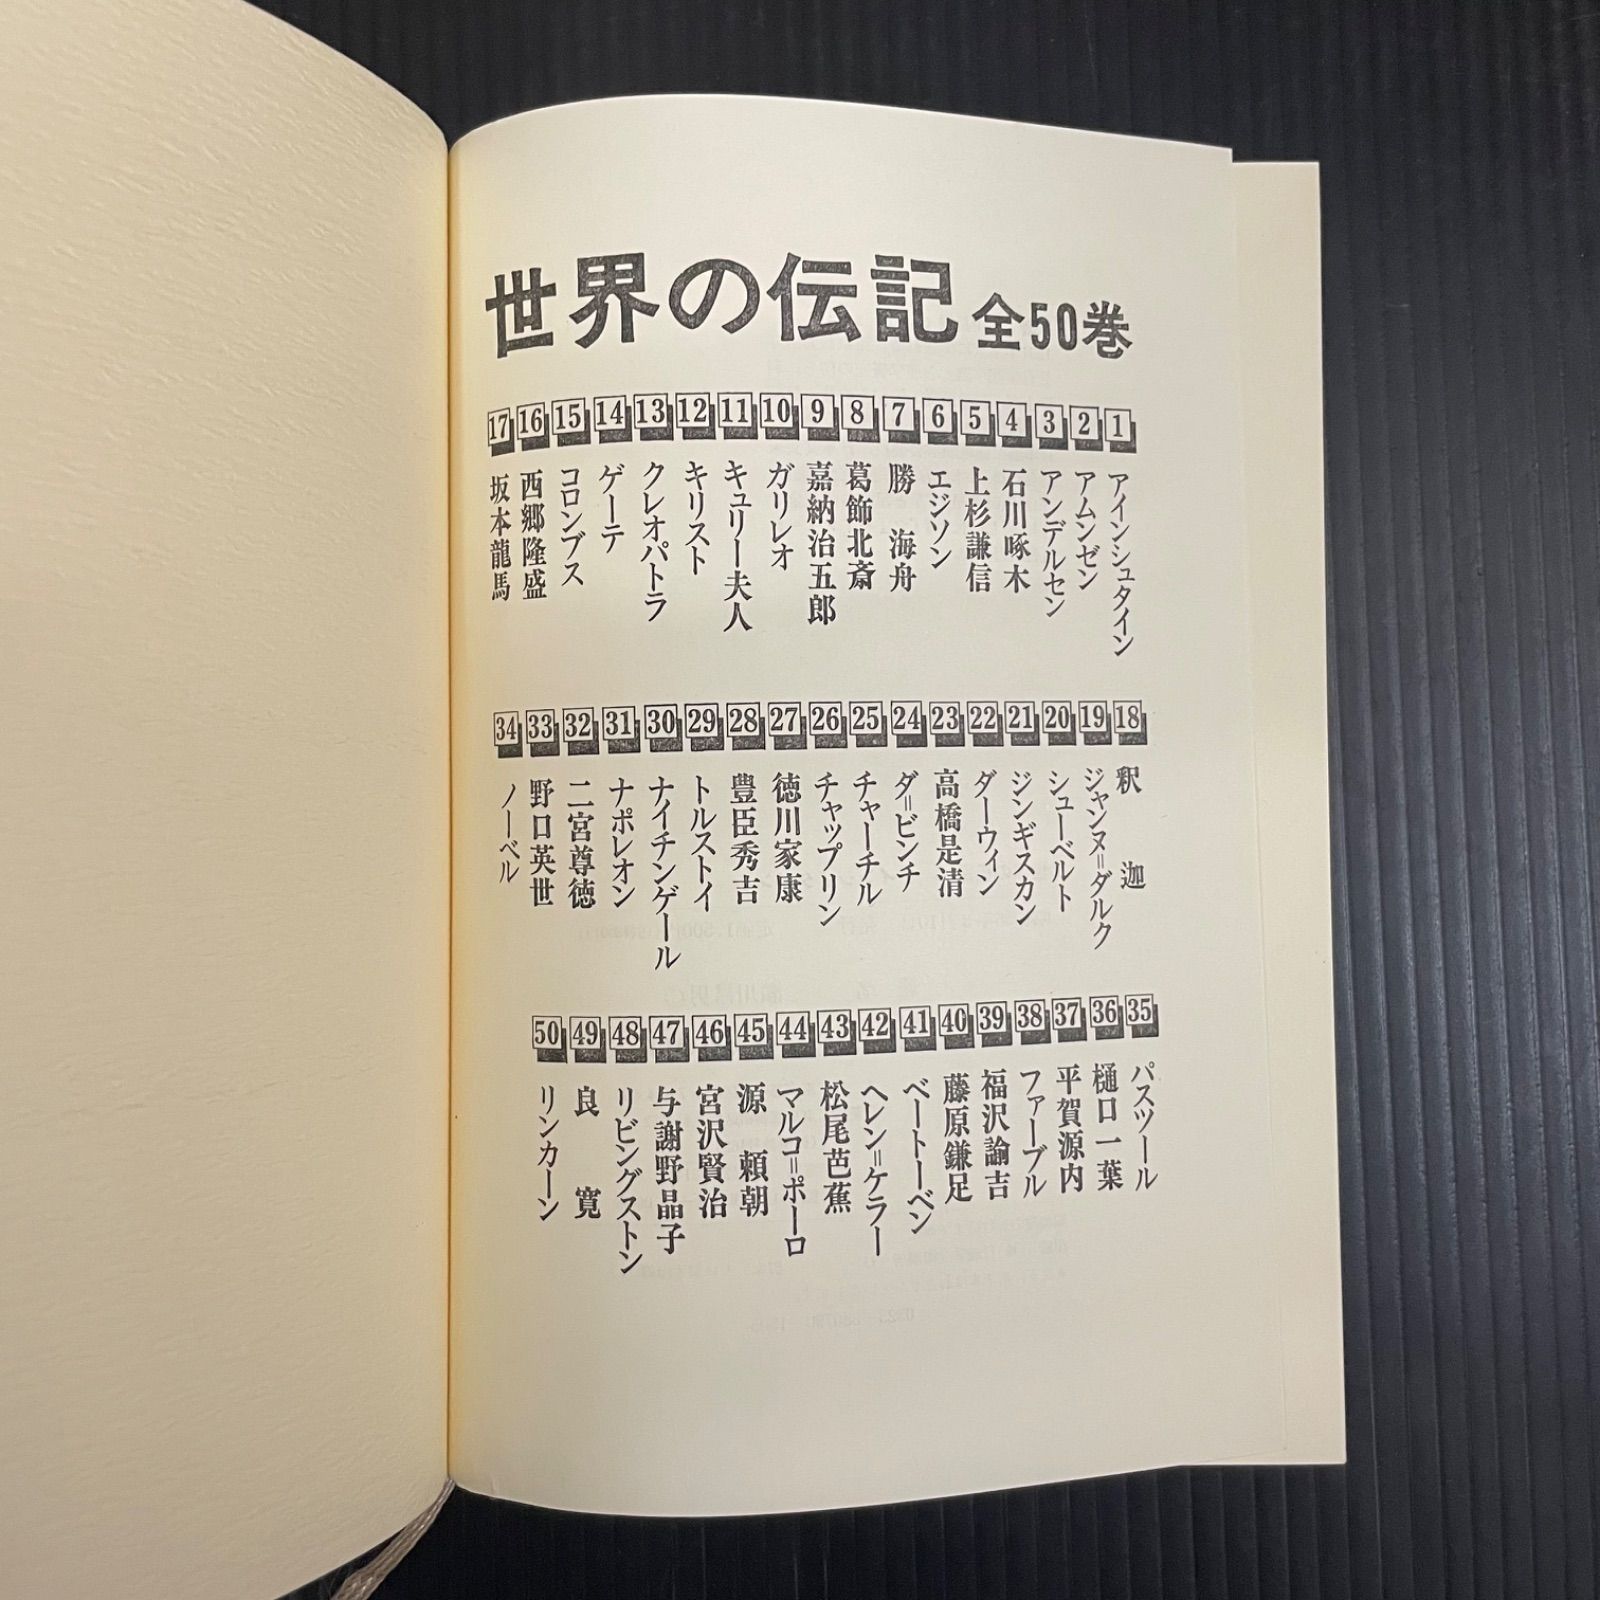 世界の伝記 全50巻
1 アインシュタイン
2 アムンゼン
3 アンデルセン
4 石川啄木
5 上杉謙信
6 エジソン
7 勝 海舟
8 葛飾北斎
9 嘉納治五郎
10 ガリレオ
11 キュリー夫人
12 キリスト
13 クレオパトラ
14 ゲーテ
15 コロンブス
16 西郷隆盛
17 坂本龍馬
18 釈 迦
19 ジャンヌ=ダルク
20 シューベルト
21 ジンギスカン
22 ダーウィン
23 高橋是清
24 ダ=ビンチ
25 チャーチル
26 チャップリン
27 徳川家康
28 豊臣秀吉
29 トルストイ
30 ナイチンゲール
31 ナポレオン
32 二宮尊徳
33 野口英世
34 ノーベル
35 パスツール
36 樋口一葉
37 平賀源内
38 ファーブル
39 福沢諭吉
40 藤原鎌足
41 ベートーベン
42 ヘレン=ケラー
43 松尾芭蕉
44 マルコ=ポーロ
45 源 頼朝
46 宮沢賢治
47 与謝野晶子
48 リビングストン
49 良 寛
50 リンカーン